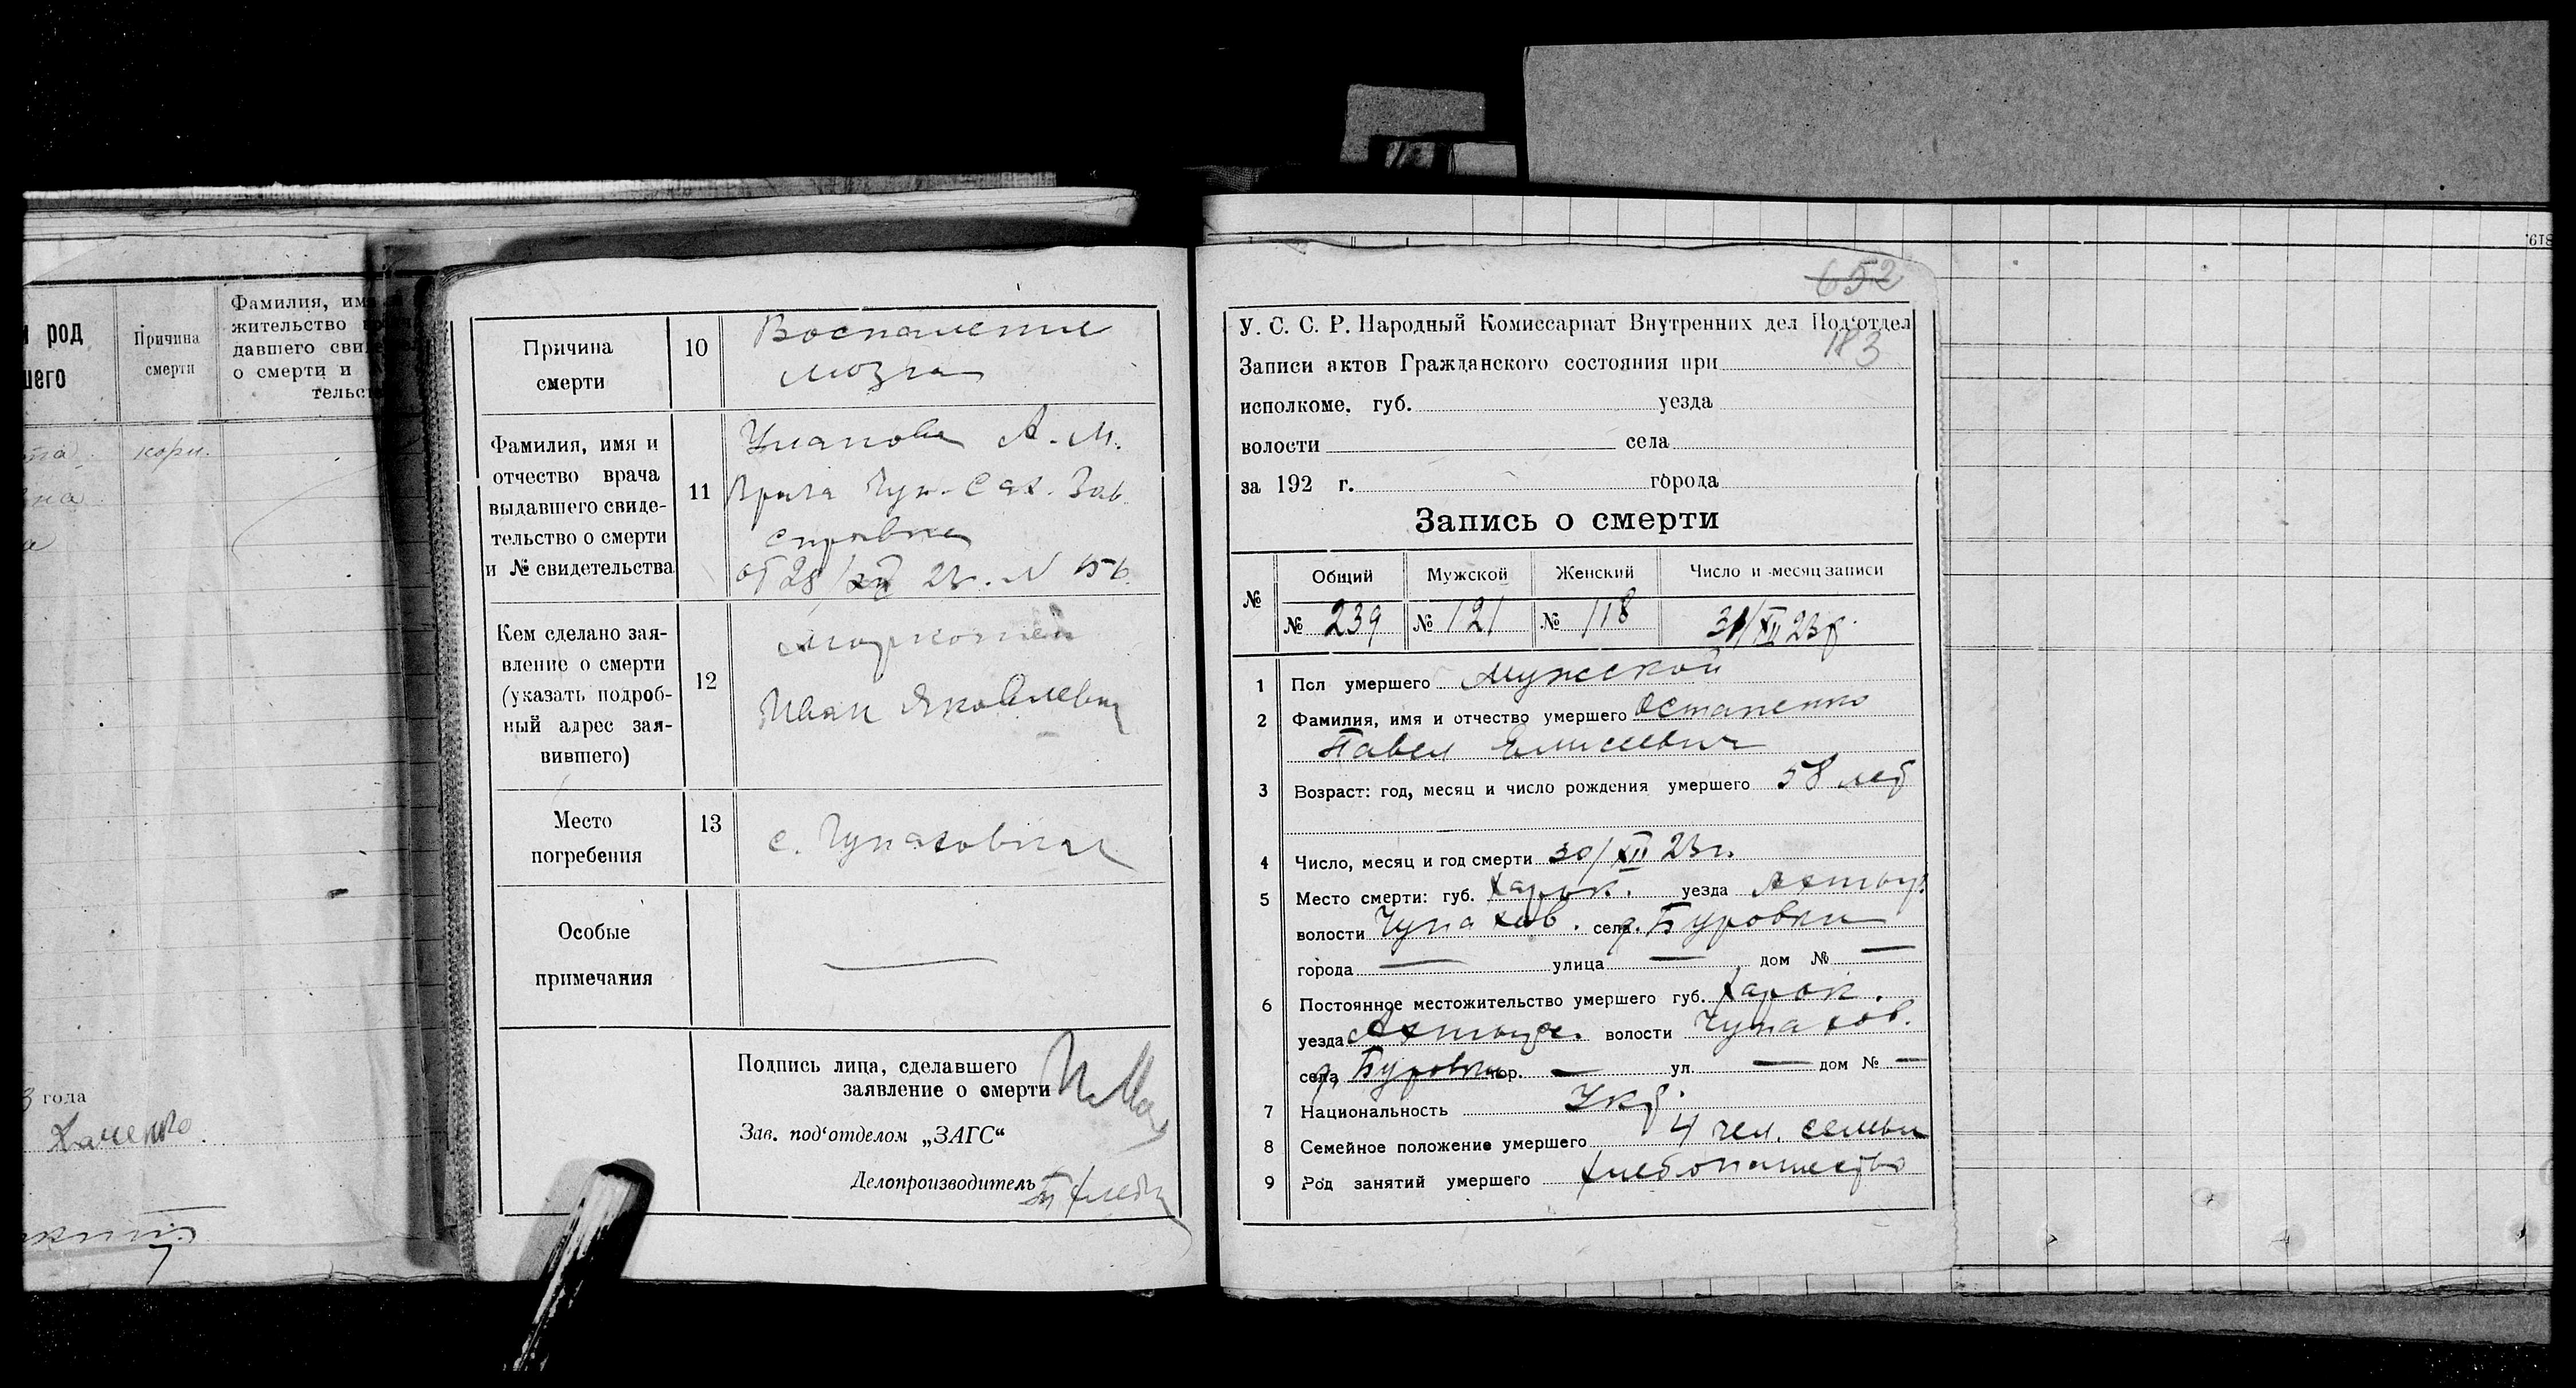 и род
шего
Причина
смерти
кори.
3 года
Причина
смерти
10
Воспаление
мозга
Фамилия, имя и
отчество врача
выдавшего свиде-
тельство о смерти
и № свидетельства
11
А. М.
Врача Чуп. Сах. Зав.
справка
от 28/XII 23. N
Кем сделано зая-
вление о смерти
(указать подроб-
ный адрес зая-
вившего)
12
Иван Яковлевич
Место
погребения
13
с. Чупаховка
Особые
примечания
—
Подпись лица, сделавшего
заявление о смерти
Зав. под‘отделом „ЗАГС“
Делопроизводитель
652
183
У. С. С. Р. Народный Комиссариат Внутренних дел Под‘отдел
Записи актов Гражданского состояния при
исполкоме. губ. уезда
волости села
за 192 г. города
Запись о смерти
№ Общий Мужской Женский Число и месяц записи
№ 239 № 121 № 118 31/XII 23г.
1 Пол умершего Мужской
2 Фамилия, имя и отчество умершего Остапенко
Павел Елисеевич
3 Возраст: год, месяц и число рождения умершего 58 лет
4 Число, месяц и год смерти 30/XII 23г.
5 Место смерти: губ. Харьк. уезда Ахтыр.
волости Чупахов. села д. Буровки
города — улица — дом № —
6 Постоянное местожительство умершего губ. Харьк.
уезда Ахтыр. волости Чупахов.
села д. Буровки гор. — ул. — дом № —
7 Национальность Укр.
8 Семейное положение умершего 4 чел. семьи
9 Род занятий умершего хлебопашество